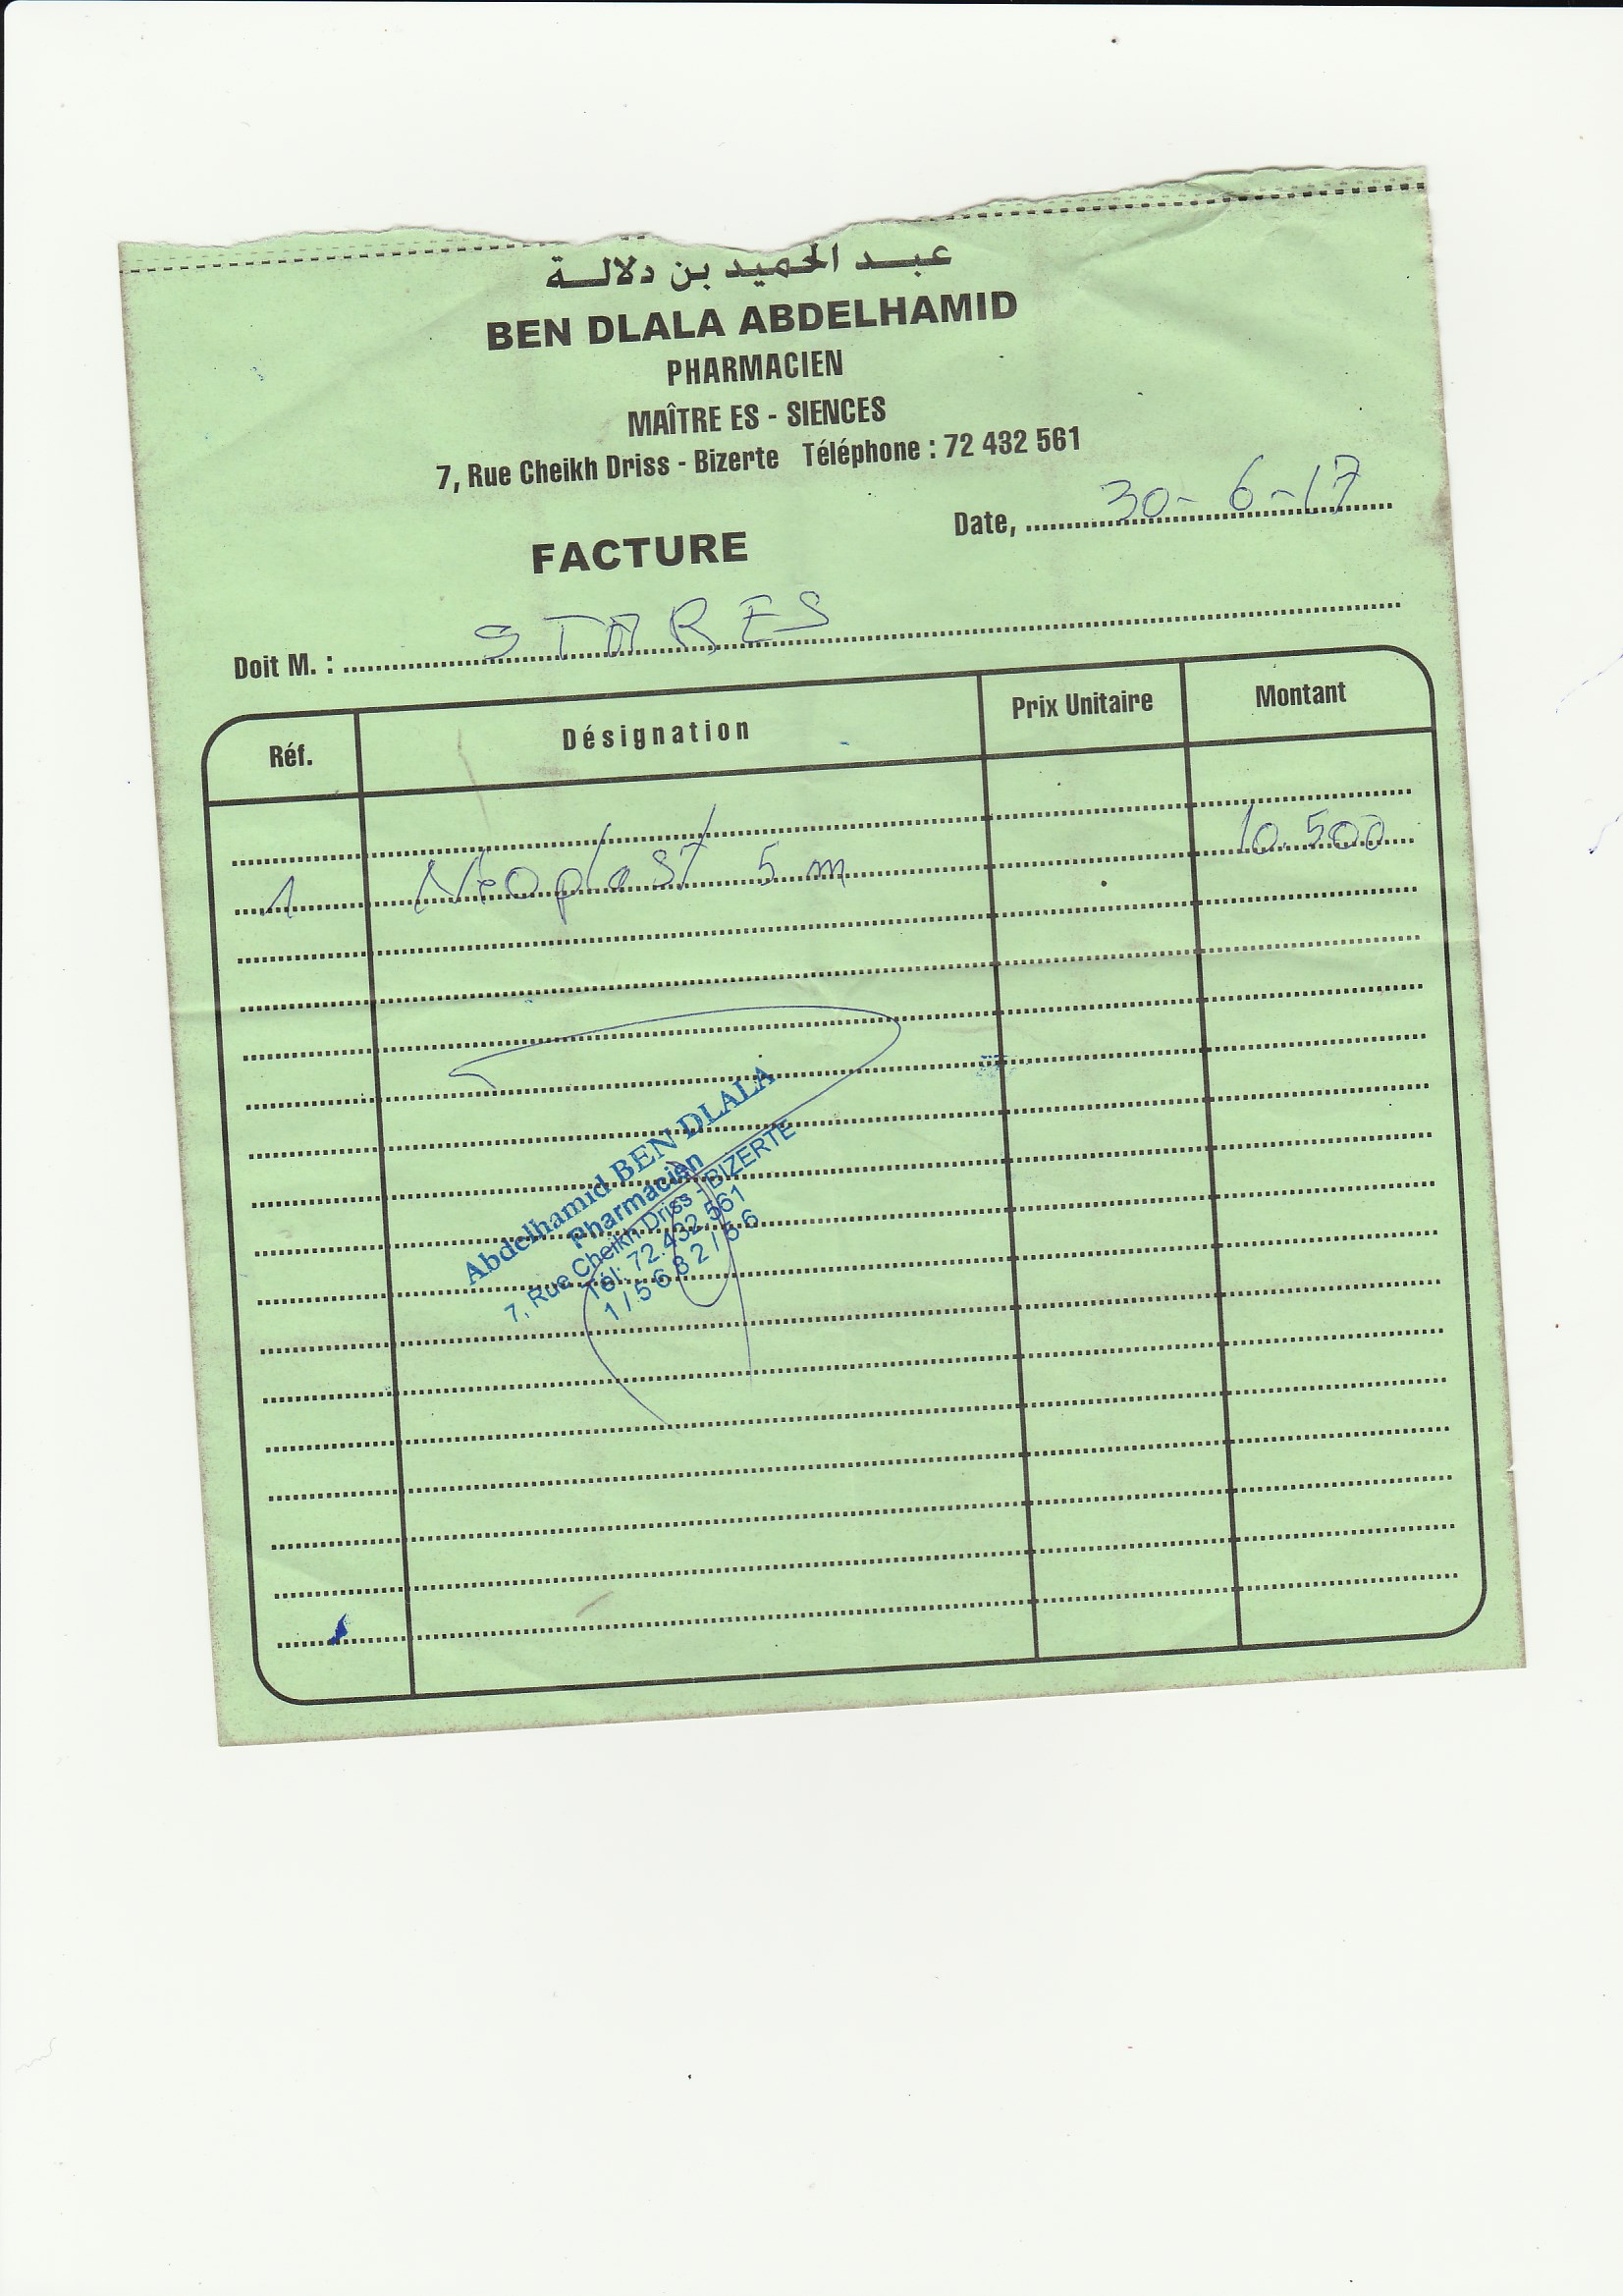 عبد الحميد بن دلالة
BEN DLALA ABDELHAMID
PHARMACIEN
MAÎTRE ES - SIENCES
7, Rue Cheikh Driss - Bizerte Téléphone : 72 432 561
Date, 30-6-17
FACTURE
Doit M. : STARES
Réf. Désignation Prix Unitaire Montant
1 Néoplast 5 m 10.500
Abdelhamid BEN DLALA
Pharmacien
7, Rue Cheikh Driss - BIZERTE
Tél: 72.432 561
1 / 5 6 8 2 / 5 6